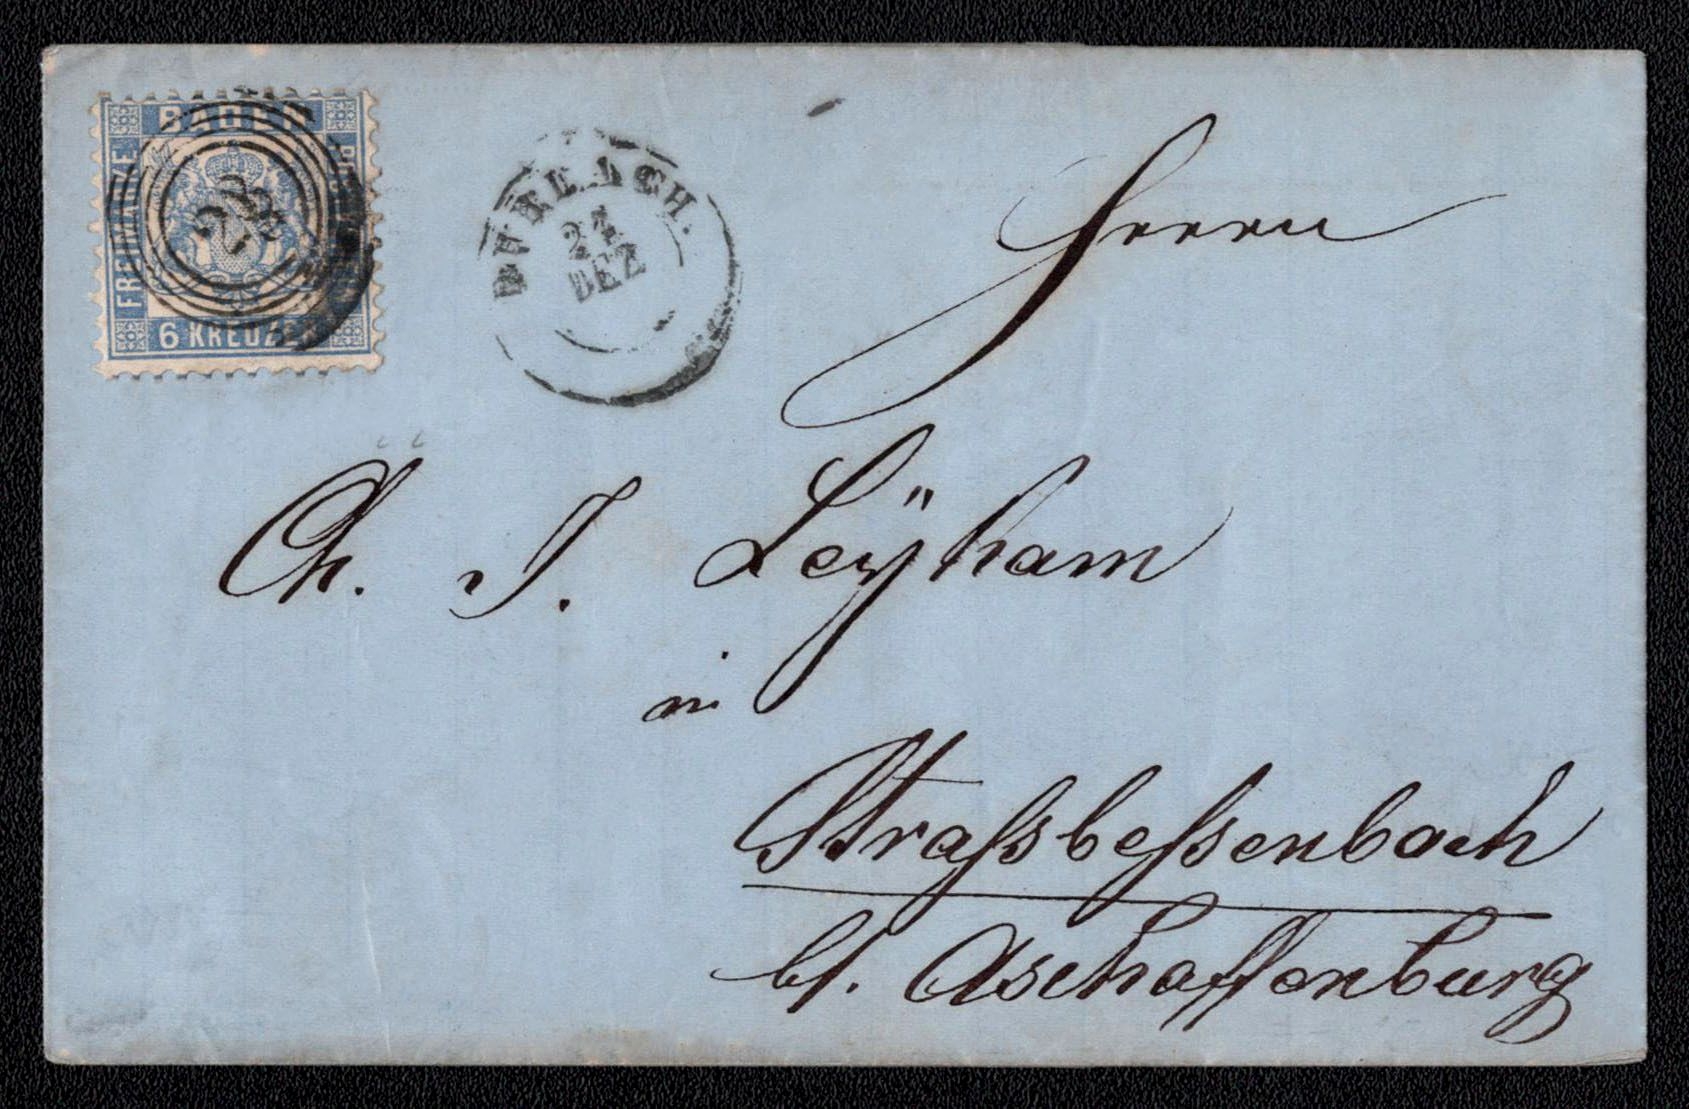 BADEN
FREIMARKE
6 KREUZER
28
DURLACH.
21
DEZ
Herrn
Ch. J. Leÿham
in
Straſsbeſsenbach
b/. Aschaffenburg